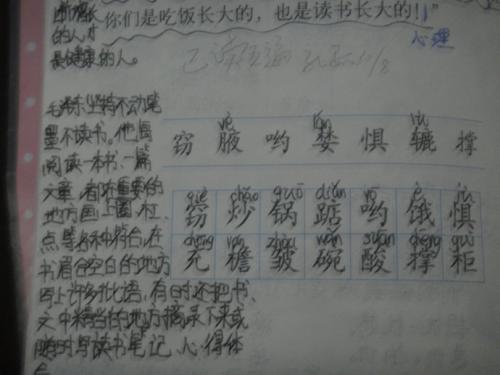 你们是吃饭长大的，也是读书长大的！”
的人才
是健康的人。
心理
毛泽东坚持不动笔
墨不读书。他每
阅读一本书，一篇
文章，都在重要的
地方画上圈、杠、
点等各种符合，在
书眉合空白的地方
写上许多批语。有时还把书、
文中精当的地方摘录下来或
随时写读书笔记、心得体
窃 腋 哟 篓 惧 辘 撑
qiè chǎo guō diǎn yō è jù
窃 炒 锅 踮 哟 饿 惧
chōng yán zhòu wǎn suān chēng guì
充 檐 皱 碗 酸 撑 柜